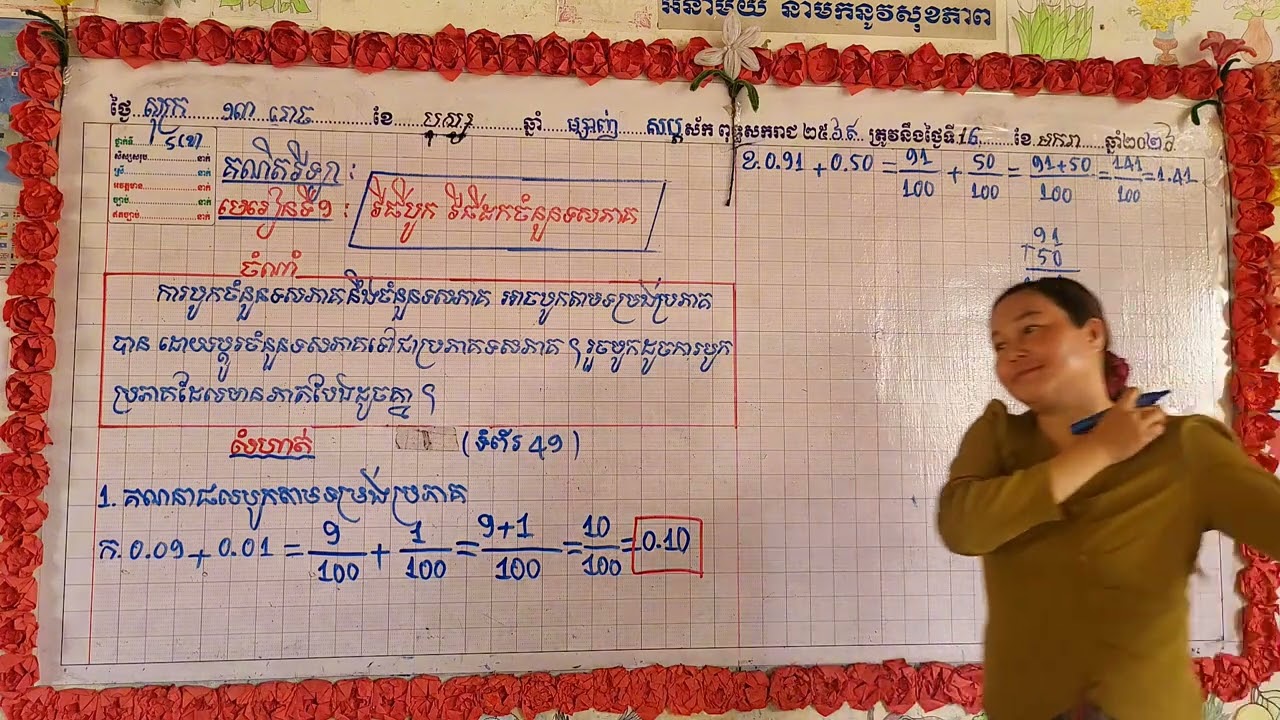 អនាម័យ នាំមកនូវសុខភាព
ថ្ងៃ សុក្រ ១៣ រោច ខែ បុស្ស ឆ្នាំ ម្សាញ់ សប្តស័ក ពុទ្ធសករាជ ២៥៦៩ ត្រូវនឹងថ្ងៃទី 16 ខែ មករា ឆ្នាំ២០២៦
ថ្នាក់ទី 5(ខ)
សិស្សសរុប នាក់
ស្រី នាក់
អវត្តមាន នាក់
ច្បាប់ នាក់
ឥតច្បាប់ នាក់
គណិតវិទ្យា :
មេរៀនទី១ : វិធីបូក វិធីដកចំនួនទសភាគ
ចំណាំ
ការបូកចំនួនទសភាគនឹងចំនួនទសភាគ អាចបូកតាមទម្រង់ប្រភាគ
បាន ដោយប្តូរចំនួនទសភាគទៅជាប្រភាគទសភាគ ។ រួចបូកដូចការបូក
ប្រភាគដែលមានភាគបែងដូចគ្នា ។
លំហាត់ (ទំព័រ 49)
1. គណនាផលបូកតាមទម្រង់ប្រភាគ
ក. 0.09 + 0.01 = 9/100 + 1/100 = 9+1/100 = 10/100 = 0.10
ខ. 0.91 + 0.50 = 91/100 + 50/100 = 91+50/100 = 141/100 = 1.41
91
+ 50